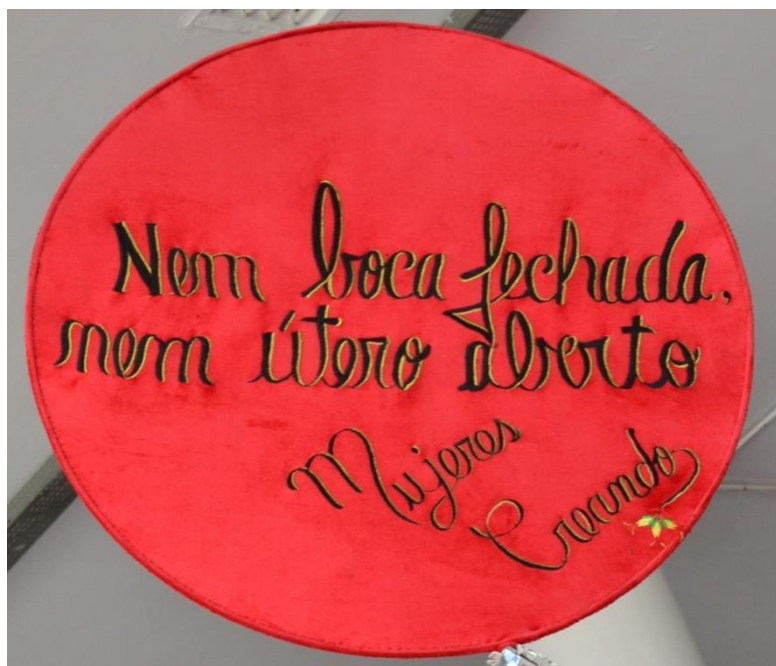 Nem boca fechada,
nem útero aberto
Mujeres
Creando